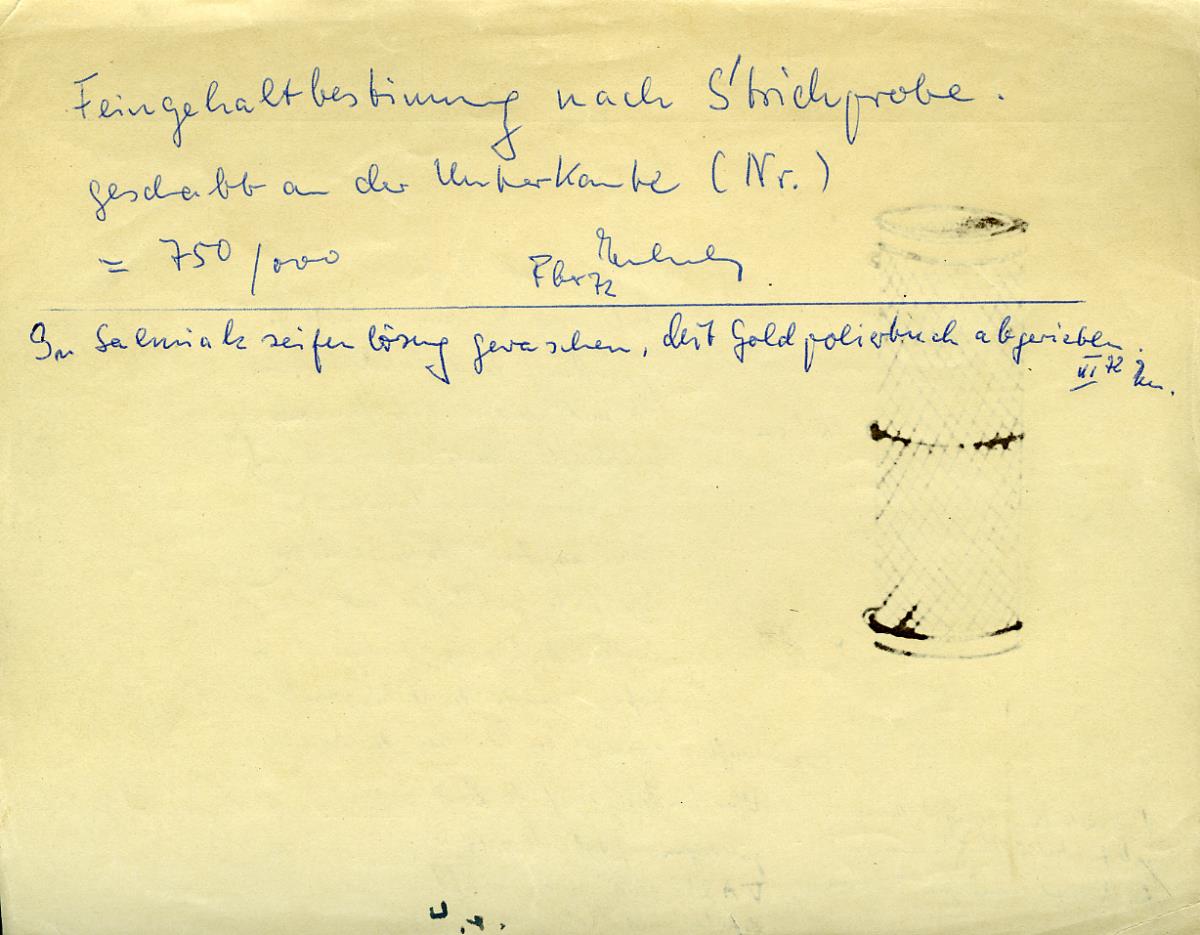 Feingehaltbestimmung nach Strichprobe.
geschabt an der Unterkante (Nr.)
= 750/000
Fbr 72
In Salmiakseifenlösung gewaschen, mit Goldpoliertuch abgerieben.
VI 72